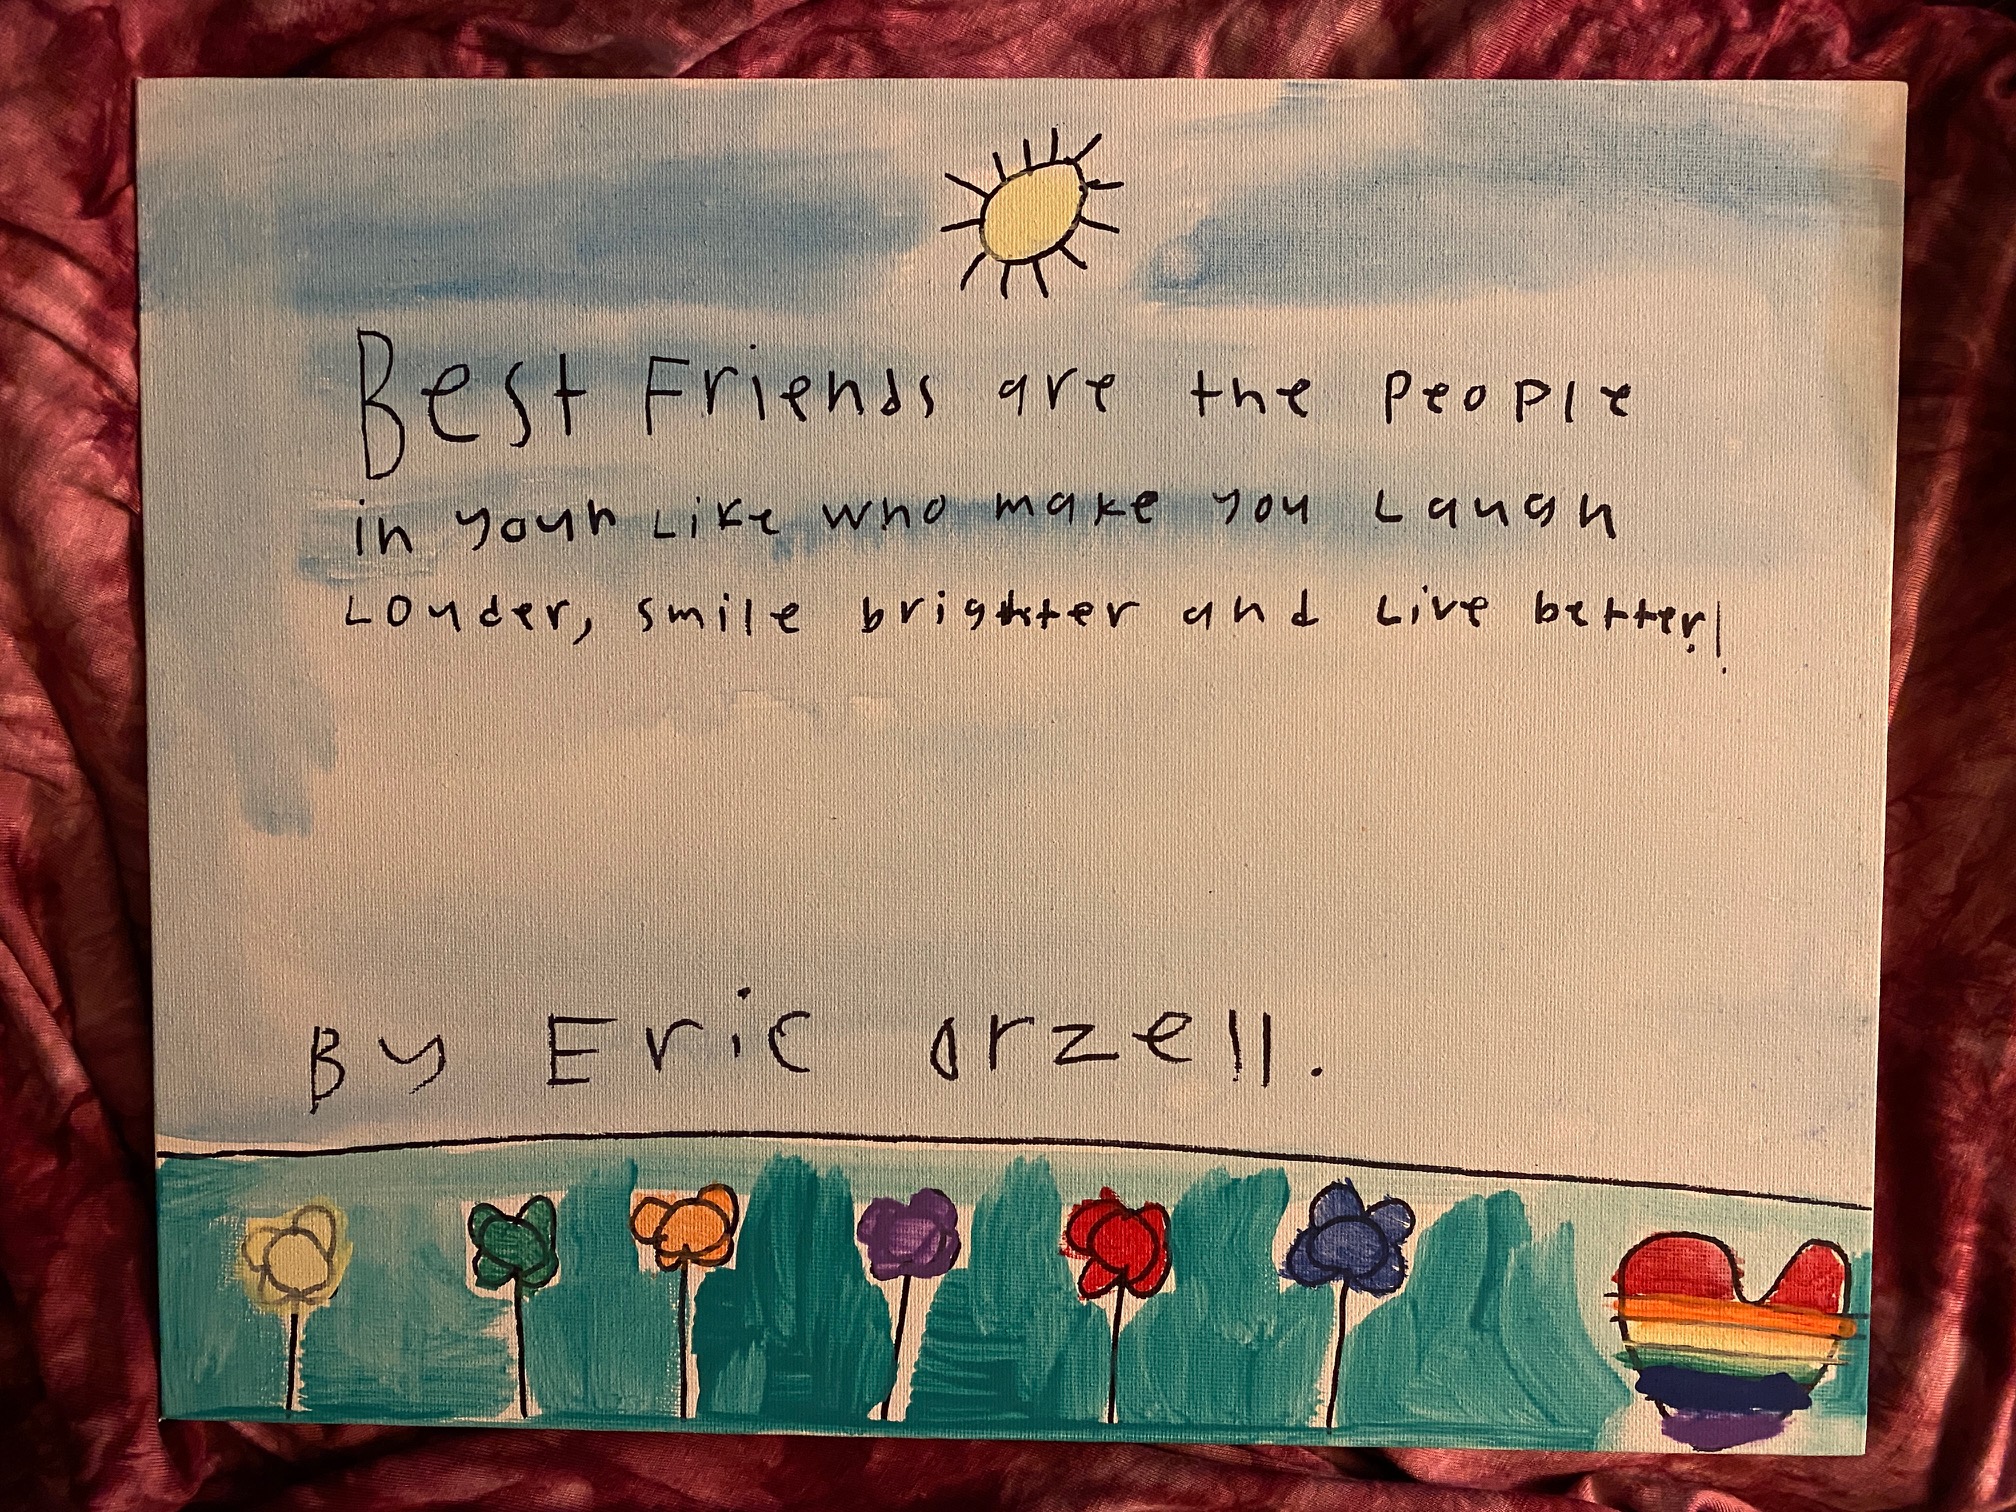 Best Friends are the people
in your Like who make you Laugh
Louder, smile brighter and Live better!
By Eric orzell.